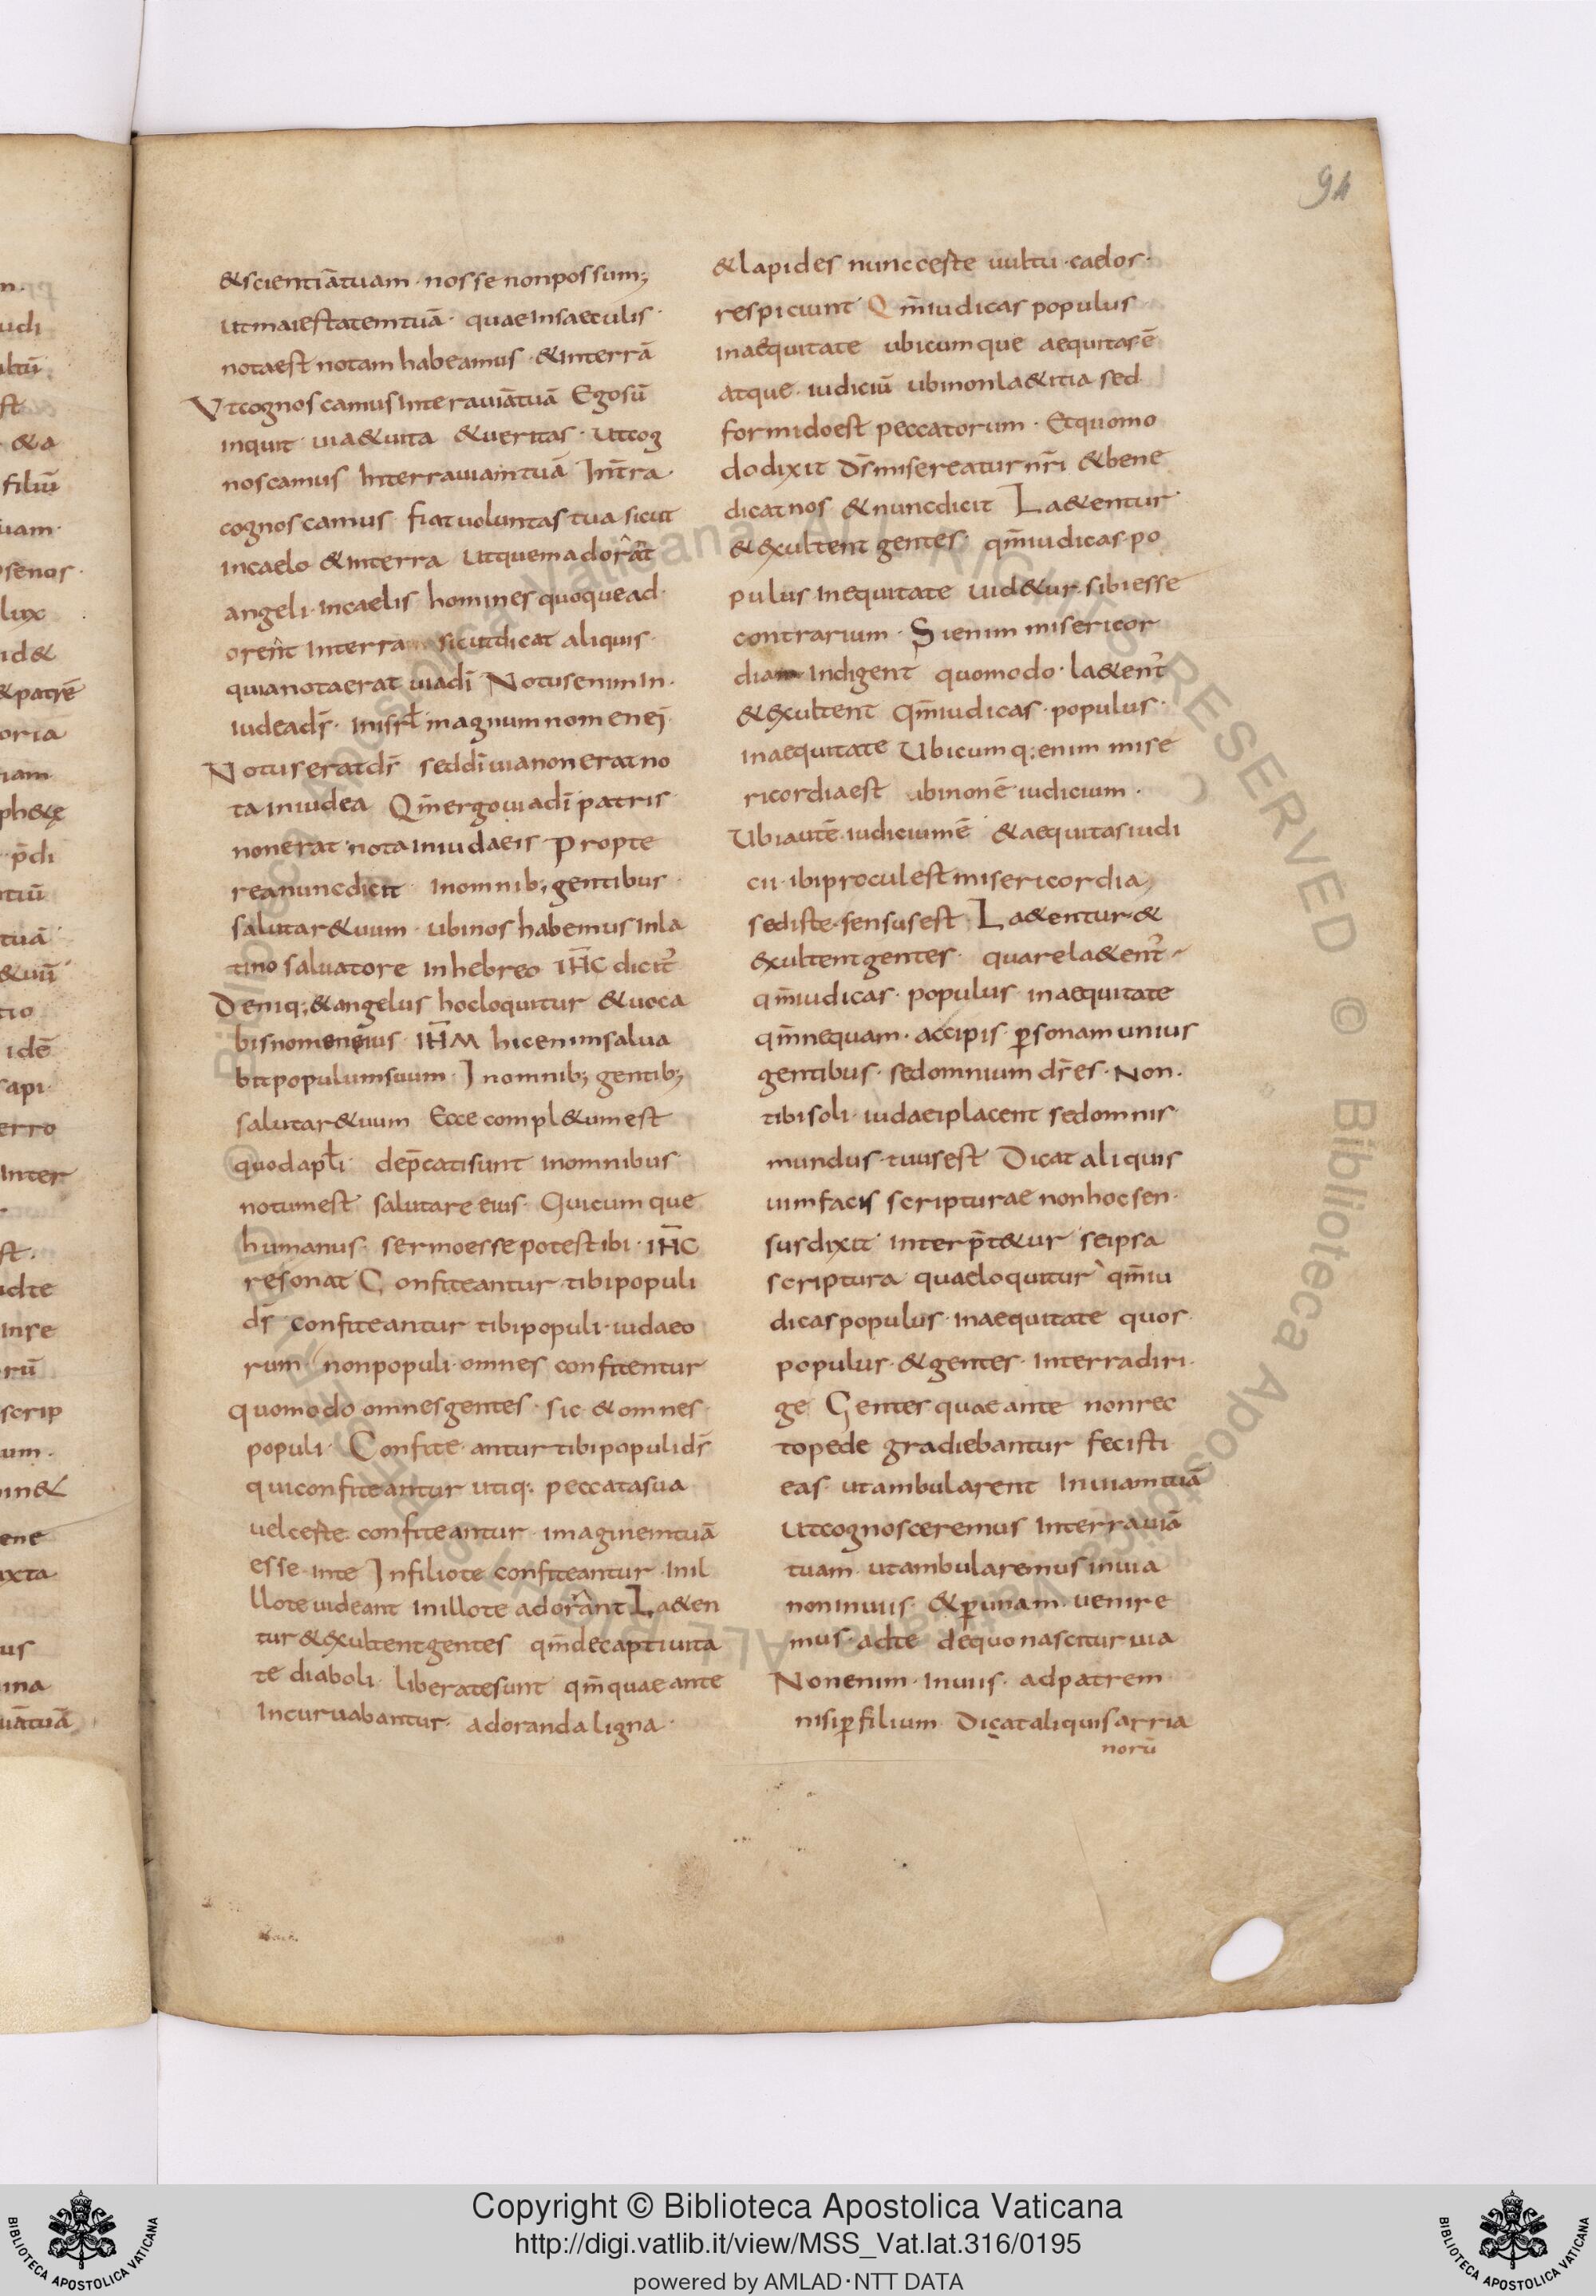 94
&scientiātuam · nosse nonpossum;
utmaiestatemtuā · quaeinsaeculis ·
notaest notam habeamus · &interrā
Vtcognoscamusinteraviātuā Egosū
inquit · uia&uita &ueritas · utcog
noscamus interrauiamtuā Int̄ra ·
cognoscamus · fiatuoluntas tua sicut
incaelo &interra utquemadorāt
angeli · incaelis homines quoquead
oren̄t interra sicutdicat aliquis ·
quianotaerat uiadī Notusenimin ·
iudeads̄ · inisrł magnumnomenei
Notuseratds̄ seddīuianoneratno
ta iniudea Qm̄ergouiadī patris
nonerat nota iniudaeis Propte
reanuncdicit · inomnib; gentibus ·
salutar&uum · ubinos habemus inla
tino saluatore inhebreo IH̄C dicit̄
Deniq; &angelus hocloquitur &uoca
bisnomeneius · IH̄M hicenimsalua
bitpopulumsuum · Inomnib; gentib;
salutar&uum Ecce compl&umest
quodapłi dep̄catisunt inomnibus
notumest salutare eius · Quicumque
humanus · sermoessepotestibi · IH̄C
resonat Confiteantur tibipopuli
ds̄ confiteantur tibipopuli · iudaeo
rum · nonpopuli omnes confitentur
quomodo omnesgentes · sic · &omnes ·
populi · Confite antur tibipopulids̄
quiconfiteantur utiq; peccatasua
uelceste confiteantur · imaginemtuā
esse inte Infiliote confiteantur · inil
llote uideant inillote adorānt La&en
tur &exultentgentes qm̄decaptiuita
te diaboli · liberatesunt qm̄quae ante
incuruabantur · adoranda ligna ·
&lapides nuncceste uultu · caelos ·
respiciunt Qm̄iudicas populus
inaequitate ubicumque aequitasē
atque · iudiciū ubinonla&itia sed
formidoest peccatorum · Etquomo
dodixit ds̄misereaturnr̄i &bene
dicatnos &nuncdicit La&entur
&exultent gentes · qm̄iudicas · po
pulus inequitate uid&ur · sibiesse
contrarium · Sienim misericor
diam indigent quomodo · la&ent̄
&exultent qm̄iudicas · populus ·
inaequitate Ubicumq; enim mise
ricordiaest ubinonē iudicium ·
Ubiautē · iudiciumē &aequitasiudi
cii · ibiproculestmisericordia,
sediste · sensusest La&entur · &
exultentgentes · quarela&ent̄
qm̄iudicas · populus · inaequitate
qm̄nequam · accipis · p̄sonamunius
gentibus · sedomnium ds̄es · Non ·
tibisoli · iudaeiplacent sedomnis
mundus · tuusest Dicat aliquis
uimfacis scripturae nonhocsen ·
susdixit interp̄t&ur seipsa
scriptura quaeloquitur qm̄iu
dicaspopulus · inaequitate quos ·
populus · &gentes · interradiri ·
ge Gentes quae ante nonrec
topede gradiebantur fecisti
eas · utambularent inuiamtuā
utcognosceremus interrauiā
tuam · utambularemusinuia
noninuiis · &p̄unam uenire
mus · adte dequonasciturura
Nonenim · inuiis · adpatrem
nisip̄filium Dicataliquisarria
norū
Copyright © Biblioteca Apostolica Vaticana
http://digi.vatlib.it/view/MSS_Vat.lat.316/0195
powered by AMLAD·NTT DATA
BIBLIOTECA APOSTOLICA VATICANA
BIBLIOTECA APOSTOLICA VATICANA